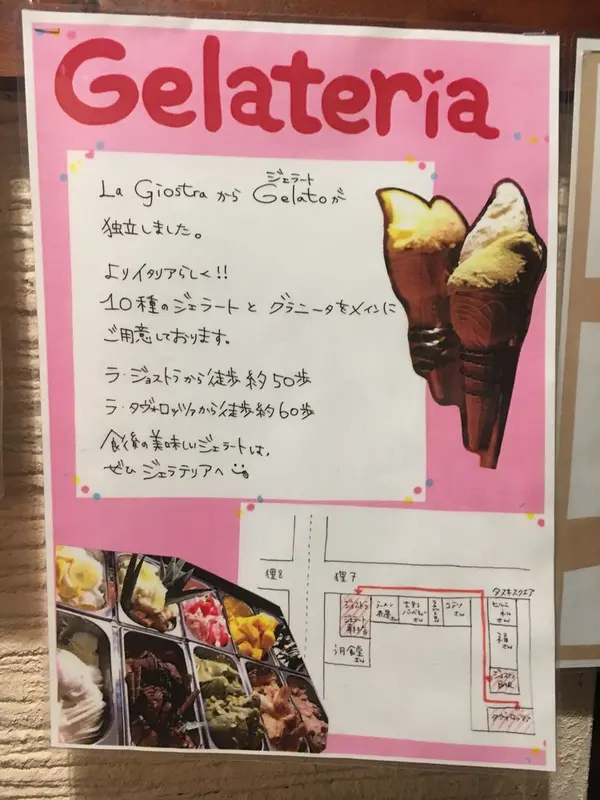 Gelateria
ジェラート
La Giostra から Gelatoが
独立しました。
よりイタリアらしく!!
10種のジェラートと グラニータをメインに
ご用意しております。
ラ・ジョストラから徒歩約50歩
ラ・タヴォロッツァから徒歩約60歩
食後の美味しいジェラートは、
ぜひ ジェラテリアへ
狸8
狸7
タヌキスクエア
ジョストラ
ジェラート
ラーメン
さん
コテツ
さん
う月食堂
さん
さん
福
さん
ジョストラ
BAR
タヴォロッツァ